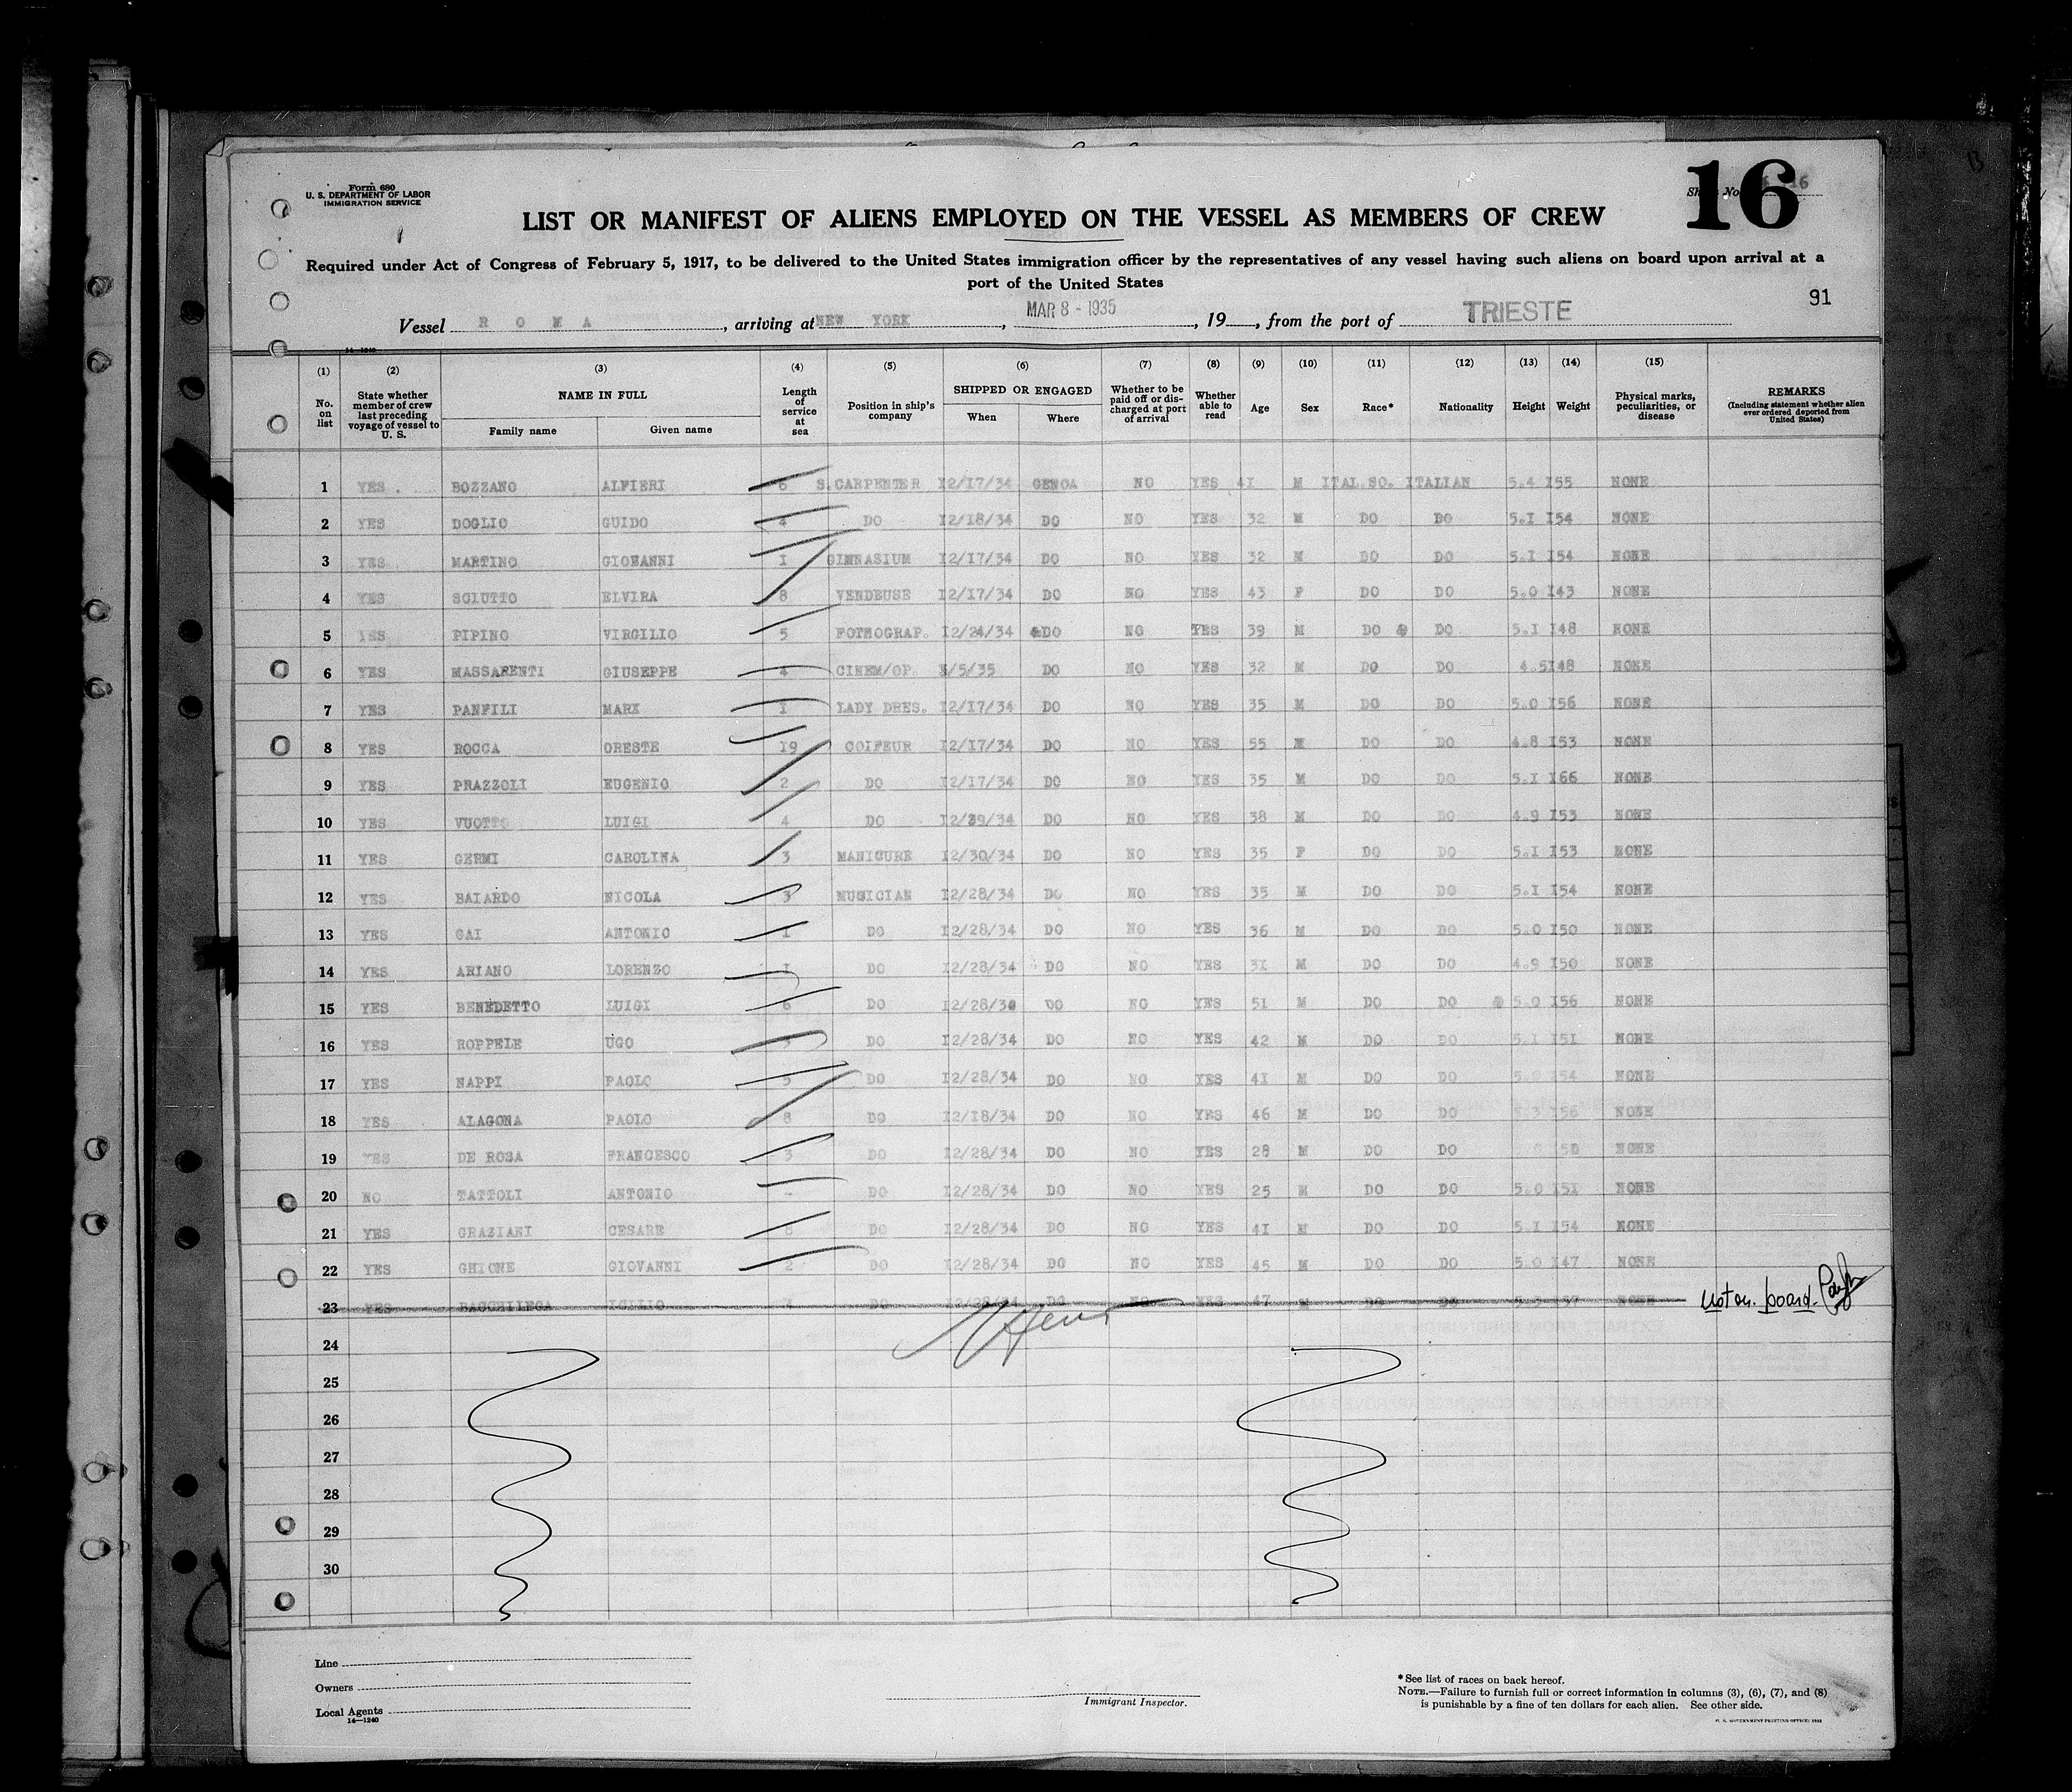 Form 680
U. S. DEPARTMENT OF LABOR
IMMIGRATION SERVICE
16
LIST OR MANIFEST OF ALIENS EMPLOYED ON THE VESSEL AS MEMBERS OF CREW
Required under Act of Congress of February 5, 1917, to be delivered to the United States immigration officer by the representatives of any vessel having such aliens on board upon arrival at a
port of the United States
91
Vessel R O M A, arriving at NEW YORK, MAR 8 - 1935, 19, from the port of TRIESTE
(1) (2) (3) (4) (5) (6) (7) (8) (9) (10) (11) (12) (13) (14) (15)
No. on list
State whether member of crew last preceding voyage of vessel to U. S.
NAME IN FULL
Family name Given name
Length of service at sea
Position in ship's company
SHIPPED OR ENGAGED
When Where
Whether to be paid off or discharged at port of arrival
Whether able to read
Age Sex Race* Nationality Height Weight
Physical marks, peculiarities, or disease
REMARKS
(Including statement whether alien ever ordered deported from United States)
1 YES BOZZANO ALFIERI 6 S.CARPENTER I2/I7/34 GENOA NO YES 4I M ITAL.SO. ITALIAN 5.4 I55 NONE
2 YES DOGLIO GUIDO 4 DO I2/I8/34 DO NO YES 32 M DO DO 5.I I54 NONE
3 YES MARTINO GIOVANNI I GIMNASIUM I2/I7/34 DO NO YES 32 M DO DO 5.I I54 NONE
4 YES SCIUTTO ELVIRA 8 VENDEUSE I2/I7/34 DO NO YES 43 F DO DO 5.0 I43 NONE
5 YES PIPINO VIRGILIO 5 FOTHOGRAP. I2/24/34 DO NO YES 39 M DO DO 5.I I48 NONE
6 YES MASSARENTI GIUSEPPE 4 CINEM/OP. /5/35 DO NO YES 32 M DO DO 4.5 I48 NONE
7 YES PANFILI MARX I LADY DRES. I2/I7/34 DO NO YES 35 M DO DO 5.0 I56 NONE
8 YES ROCCA ORESTE I9 COIFEUR I2/I7/34 DO NO YES 55 M DO DO 4.8 I53 NONE
9 YES PRAZZOLI EUGENIO 2 DO I2/I7/34 DO NO YES 35 M DO DO 5.I I66 NONE
10 YES VUOTTO LUIGI 4 DO I2/29/34 DO NO YES 38 M DO DO 4.9 I53 NONE
11 YES GERMI CAROLINA 3 MANICURE I2/30/34 DO NO YES 35 F DO DO 5.I I53 NONE
12 YES BAIARDO NICOLA 3 MUSICIAN I2/28/34 DO NO YES 35 M DO DO 5.I I54 NONE
13 YES GAI ANTONIO I DO I2/28/34 DO NO YES 36 M DO DO 5.0 I50 NONE
14 YES ARIANO LORENZO I DO I2/28/34 DO NO YES 3I M DO DO 4.9 I50 NONE
15 YES BENEDETTO LUIGI 6 DO I2/28/34 DO NO YES 51 M DO DO 5.0 I56 NONE
16 YES ROPPELE UGO DO I2/28/34 DO NO YES 42 M DO DO 5.I I5I NONE
17 YES NAPPI PAOLO 5 DO I2/28/34 DO NO YES 4I M DO DO I54 NONE
18 YES ALAGONA PAOLO 8 DO I2/I8/34 DO NO YES 46 M DO DO 5.3 I56 NONE
19 YES DE ROSA FRANCESCO 3 DO I2/28/34 DO NO YES 28 M DO DO NONE
20 NO TATTOLI ANTONIO - DO I2/28/34 DO NO YES 25 M DO DO 5.0 I5I NONE
21 YES GRAZIANI CESARE 8 DO I2/28/34 DO NO YES 4I M DO DO 5.I I54 NONE
22 YES GHIONE GIOVANNI 2 DO I2/28/34 DO NO YES 45 M DO DO 5.0 I47 NONE
23 YES DO I2/28/34 DO NO YES 47 M DO DO NONE Not on board.
24
25
26
27
28
29
30
Line
Owners
Local Agents
14—1240
Immigrant Inspector.
* See list of races on back hereof.
NOTE.—Failure to furnish full or correct information in columns (3), (6), (7), and (8)
is punishable by a fine of ten dollars for each alien. See other side.